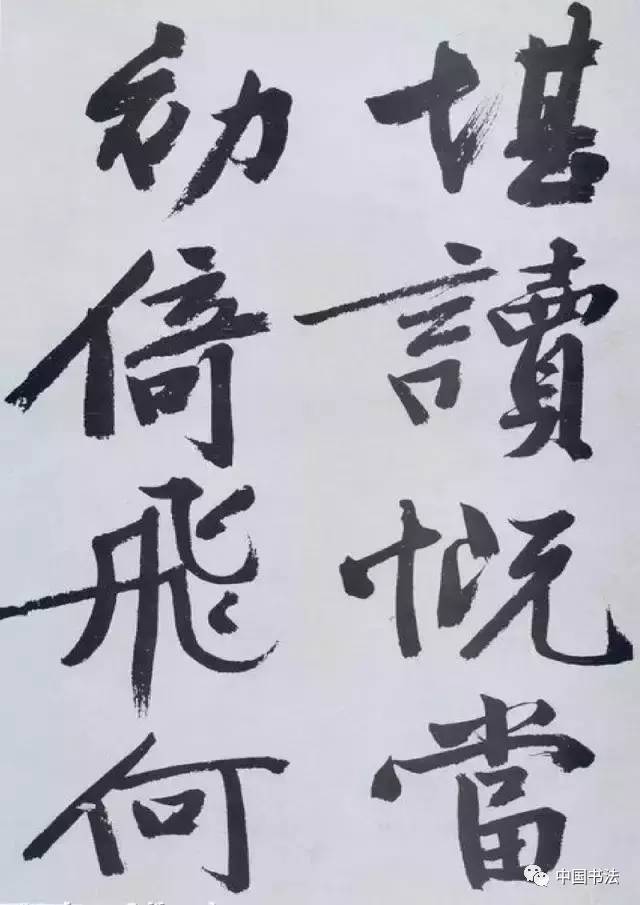 堪讀慨當
初倚飛何
中国书法